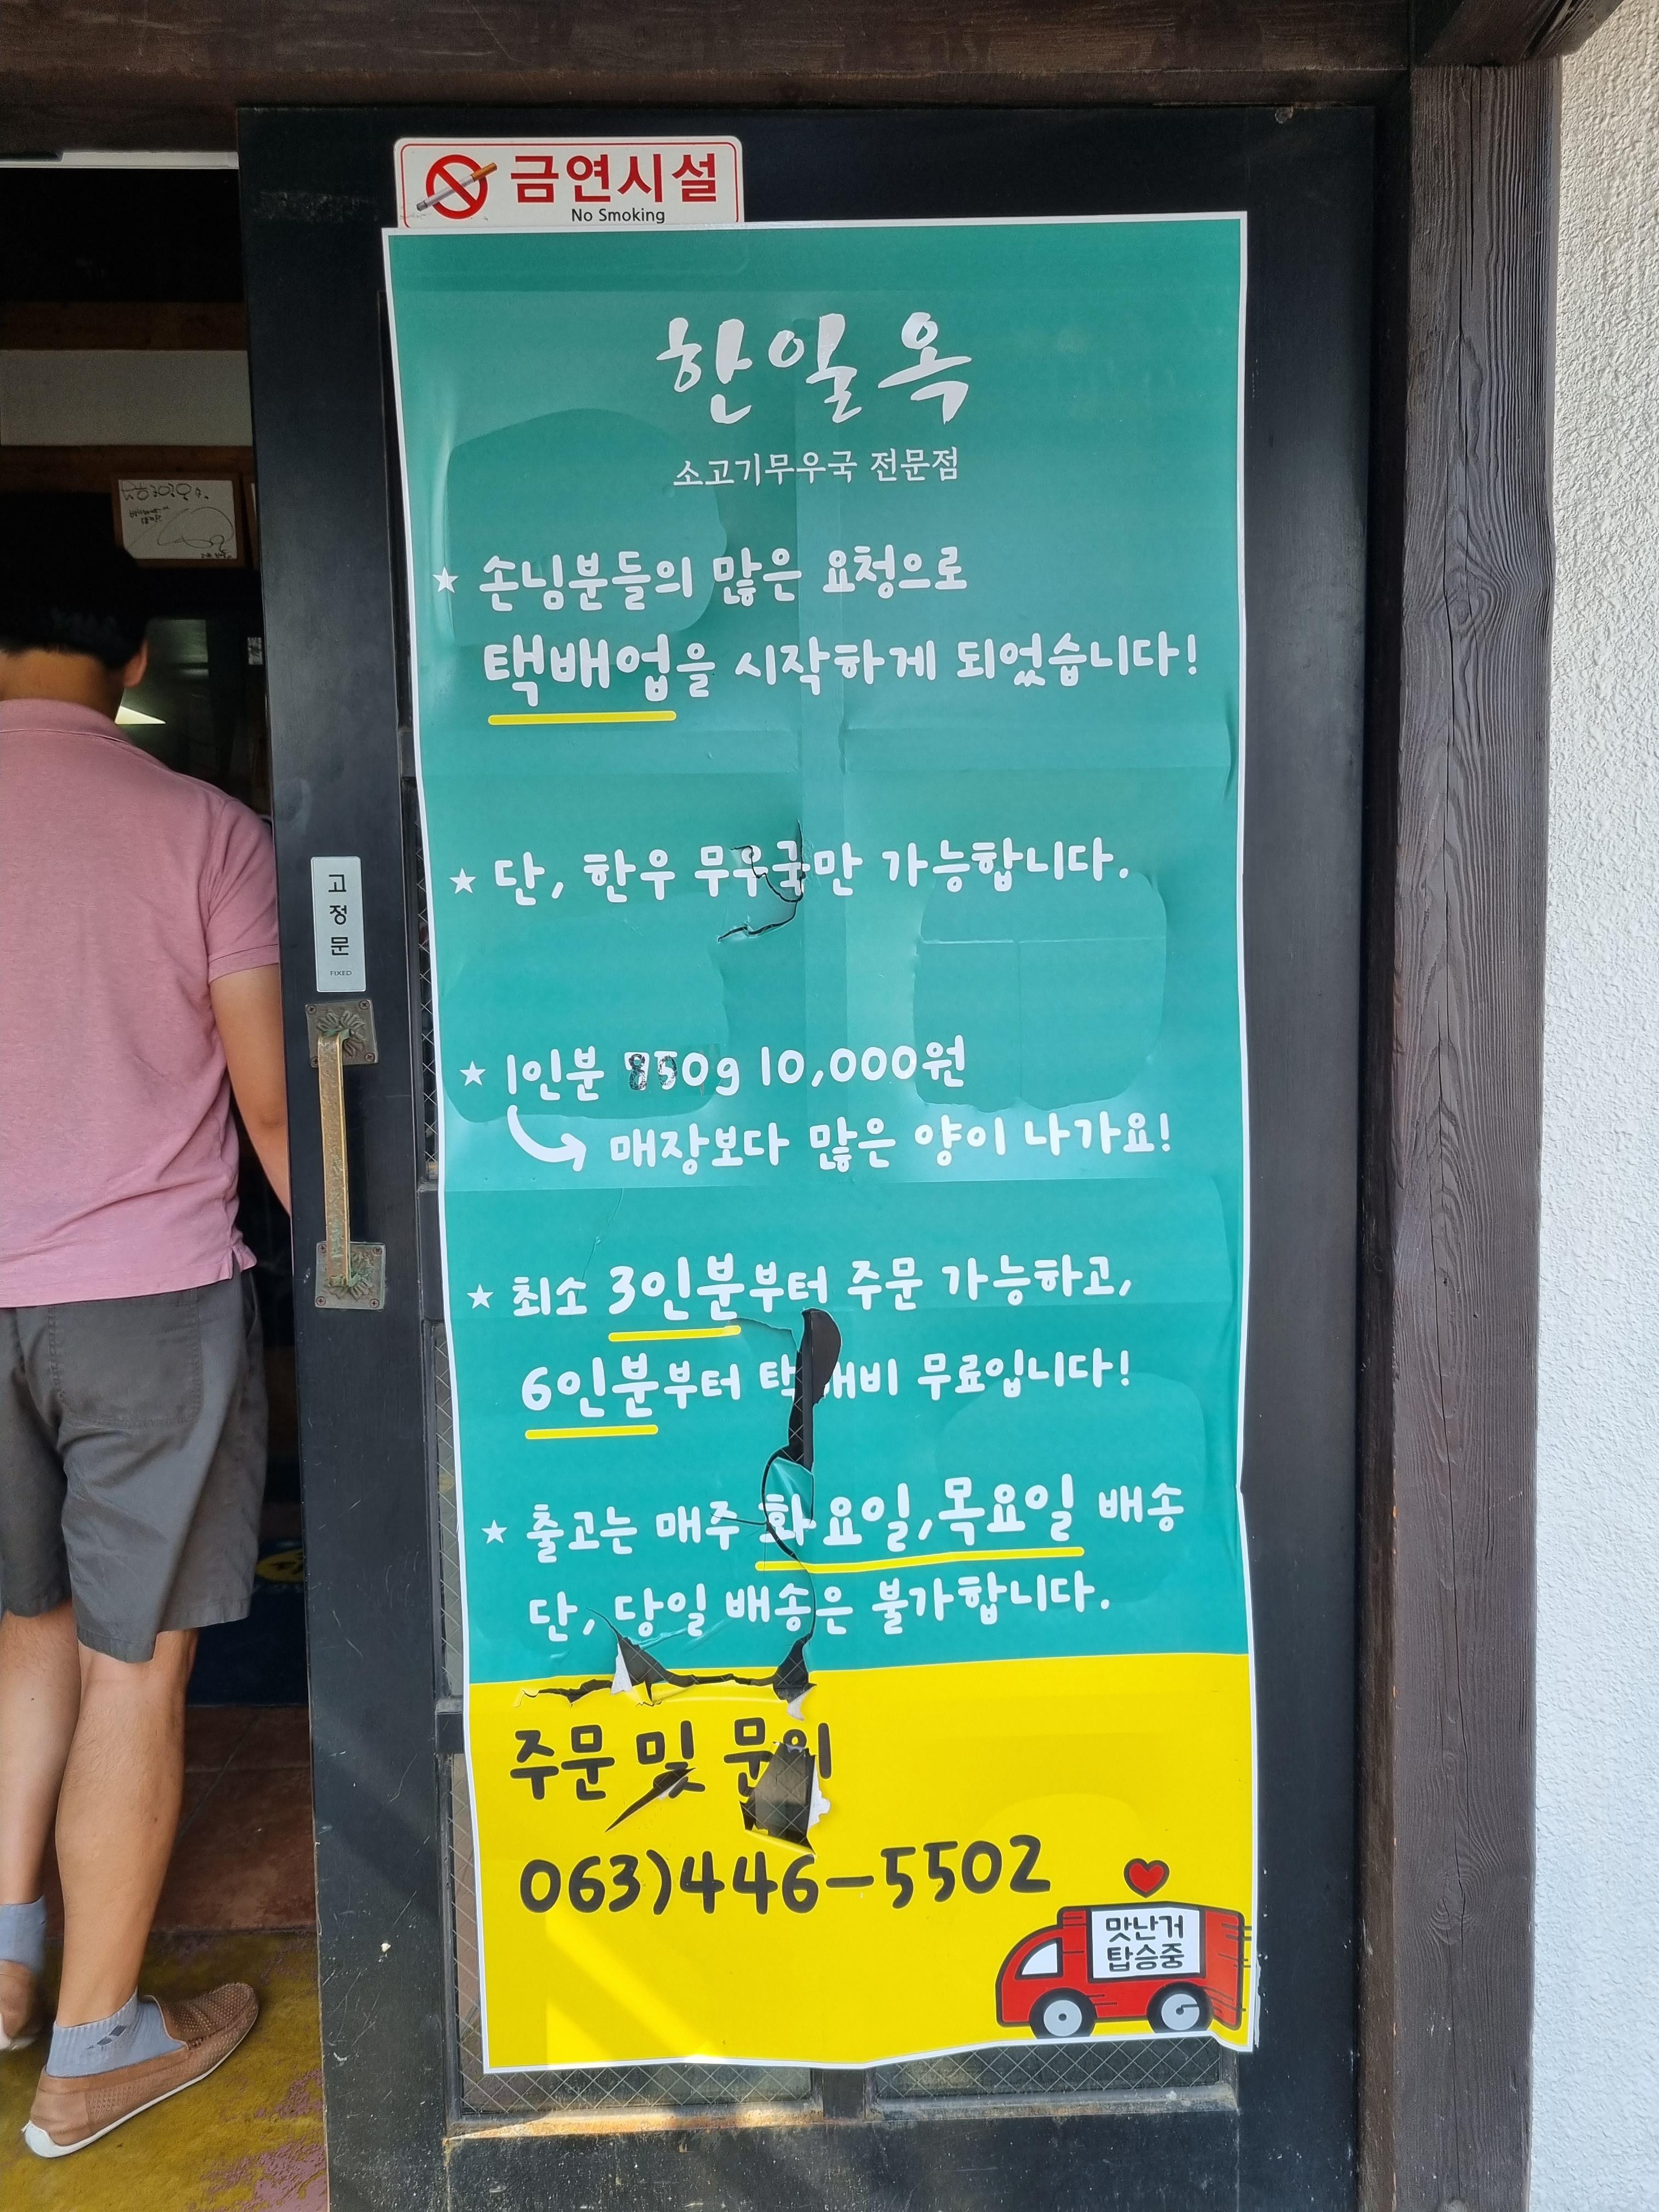 금연시설
No Smoking
한일옥
소고기무우국 전문점
★ 손님분들의 많은 요청으로
택배업을 시작하게 되었습니다!
★ 단, 한우 무우국만 가능합니다.
고정문
FIXED
★ 1인분 850g 10,000원
매장보다 많은 양이 나가요!
★ 최소 3인분부터 주문 가능하고,
6인분부터 택배비 무료입니다!
★ 출고는 매주 화요일,목요일 배송
단, 당일 배송은 불가합니다.
주문 및 문의
063)446-5502
맛난거
탑승중